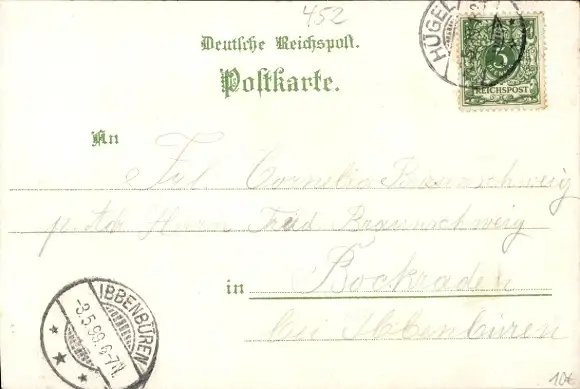 452
Deutsche Reichspost.
Postkarte.
HÜGEL
5
REICHSPOST
An
Frl. Cornelia Braunschweig
p. Adr Herrn Fried Braunschweig
in Bockraden
bei Ibbenbüren
IBBENBÜREN
-3.5.99.6-7N.
10€